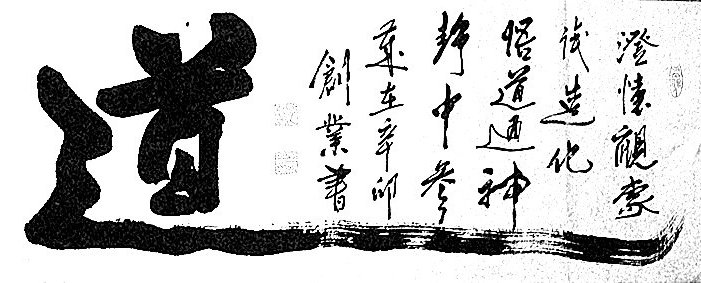 澄懷觀象
識造化
悟道通神
靜中參
歲在辛卯
創業書
道